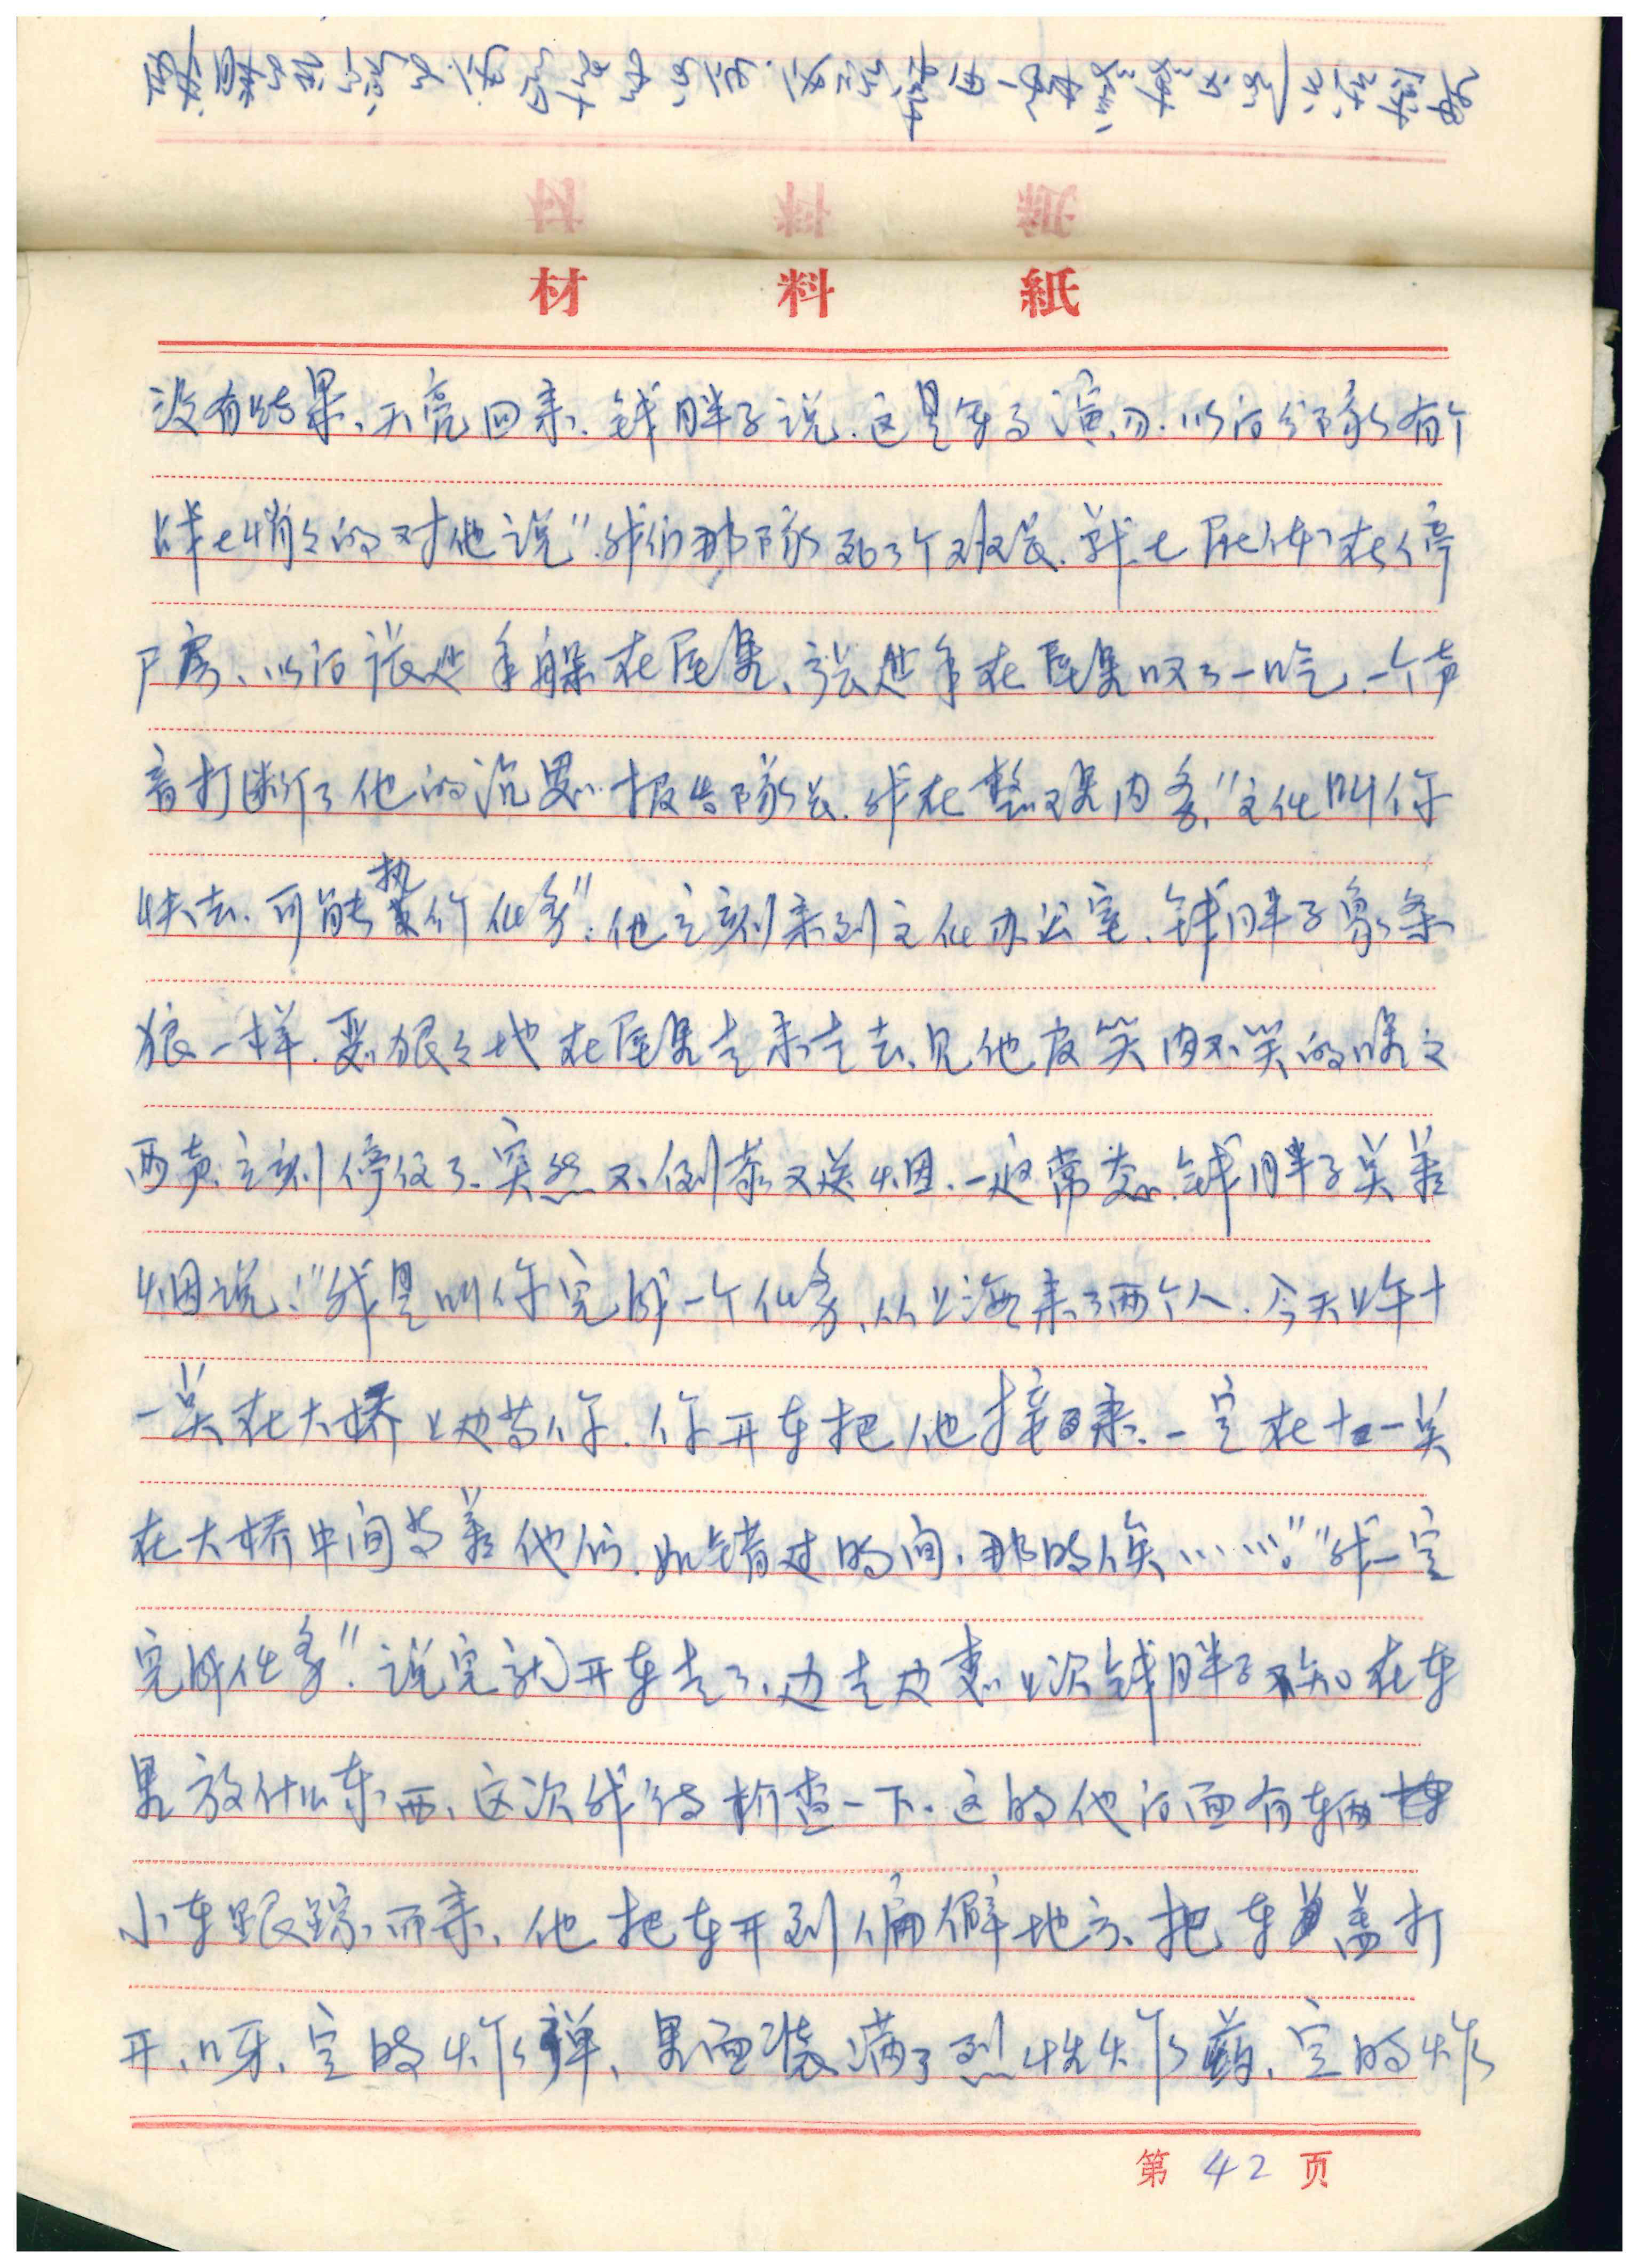 材料紙
没有结果、天亮回来、钱胖子说、这是军事演习.以后分队有个
战士悄々的对他说"我们那队死了个班长、战士尸体在停
尸房、以后张进手躲在屋里、张进手在屋里叹了一口气.一个声
音打断了他的沉思.报告队长.我在整理内务,"主任叫你
快去、可能执行任务".他立刻来到主任办公室、钱胖子象条
狼一样.恶狠々地在屋里走来走去、见他皮笑肉不笑的嘿々
两声、立刻停住了、突然又倒茶又送烟.一返常态.钱胖子点着
烟说:"我是叫你完成一个任务、从上海来了两个人.今天上午十
一点在大桥上边等你.你开车把他接回来.一定在十一点
在大桥中间等着他们.如错过时间、那时候……""我一定
完成任务".说完就开车走了、边走边想上次钱胖子不知在车
里放什么东西、这次我得检查一下.这时他后面有辆
小车跟踪而来、他把车开到偏僻地方、把车盖打
开、呀、定时炸弹、里面装满了烈性炸药、定时炸
第 42 页